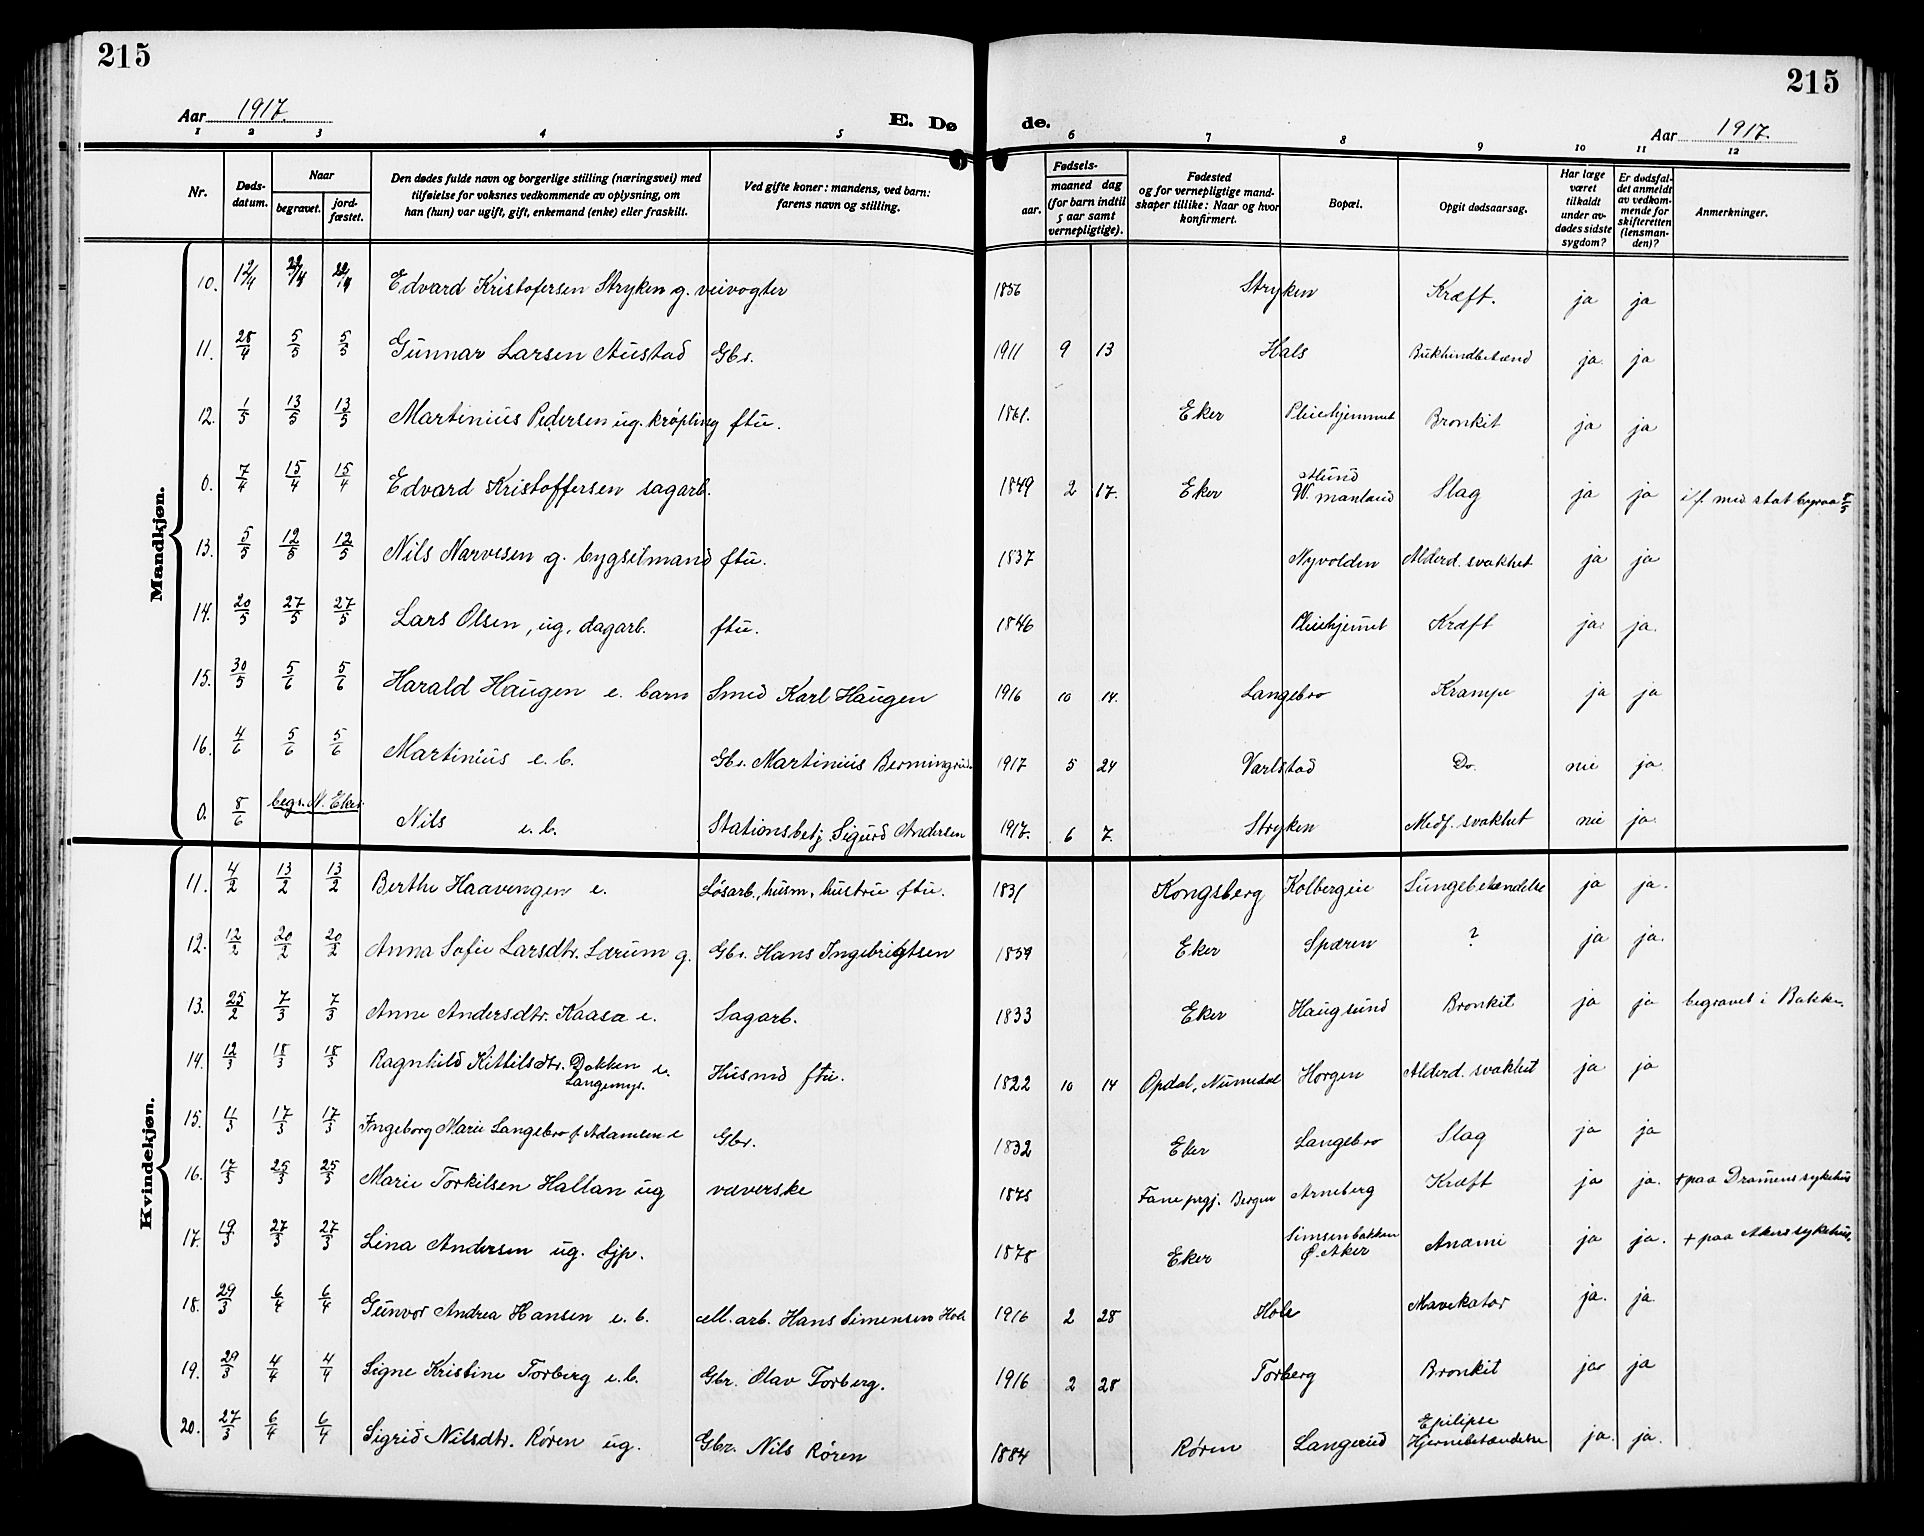 215
215
Aar 1917.
E. Dø
de.
Aar 1917.
1 2 3 4 5 6 7 8 9 10 11 12
Nr.
Døds-datum.
Naar
begravet.
jord-fæstet.
Den dødes fulde navn og borgerlige stilling (næringsvei) med
tilføielse for voksnes vedkommende av oplysning, om
han (hun) var ugift, gift, enkemand (enke) eller fraskilt.
Ved gifte koner: mandens, ved barn:
farens navn og stilling.
Fødsels-
aar.
maaned dag
(for barn indtil
5 aar samt
vernepligtige).
Fødested
og for vernepligtige mand-
skaper tillike: Naar og hvor
konfirmert.
Bopæl.
Opgit dødsaarsag.
Har læge
været
tilkaldt
under av-
dødes sidste
sygdom?
Er dødsfal-
det anmeldt
av vedkom-
mende for
skifteretten
(lensman-
den)?
Anmerkninger.
Mandkjøn.
10. 12/4 22/4 22/4 Edvard Kristofersen Stryken g. veivogter 1856 Stryken Kræft. ja ja
11. 28/4 5/5 5/5 Gunnar Larsen Austad Gbr. 1911 9 13 Hals Bukhindbetænd ja. ja
12. 1/5 13/5 13/5 Martinius Pedersen ug. krøpling ftu. 1861. Eker Pleiehjemmet Bronkit ja ja
0. 7/4 15/4 15/4 Edvard Kristoffersen sagarb. 1849 2 17. Eker W. manland Slag ja ja i/f med stat byraa 8/5
13. 5/5 12/5 12/5 Nils Narvesen g. bygselmand ftu. 1837 Nyvolden Alderd. svakhet ja ja
14. 20/5 27/5 27/5 Lars Olsen, ug. dagarb. ftu. 1846 Pleiehjemet Kræft ja ja.
15. 30/5 5/6 5/6 Harald Haugen e. barn Smed Karl Haugen 1916 10 14. Langebro Krampe ja ja
16. 4/6 5/6 5/6 Martinius e. b. Gbr. Martinius Bermingrud. 1917 5 24 Varlstad Do. nei ja.
0. 8/6 begr. N. Eker Nils e. b. Stationsbetj. Sigurd Andersen 1917. 6 7. Stryken Medf. svakhet nei ja.
Kvindekjøn.
11. 4/2 13/2 13/2 Berthe Haavengen e. Løsarb., husm. hustru ftu. 1831 Kongsberg Kolbergeie Lungebetændelse ja ja.
12. 12/2 20/2 20/2 Anna Sofie Larsdtr. Lærum g. Gbr. Hans Ingebrigtsen 1859 Eker Spæren ? ja ja.
13. 25/2 7/3 7/3 Anne Andersdtr. Kaasa e. Sagarb. 1833 Eker Haugsund Bronkit ja ja begravet i Bakke.
14. 12/3 18/3 18/3 Ragnhild Kittilsdtr. Dokken e. Husmd ftu. 1822 10 14 Opdal, Numedal Horgen Alderd. svakhet ja ja
Langemyr.
15. 11/3 17/3 17/3 Ingeborg Marie Langebro f. Adamsen e Gbr. 1832 Eker Langebro Slag ja ja
16. 17/3 25/3 25/3 Marie Torkilsen Hallan ug væverske 1875 Fane prgj. Bergen Arneberg Kræft ja ja. + paa Dramens sykehus
17. 19/3 27/3 27/3 Lina Andersen ug. tjp. 1878 Eker Simsenbakken Ø. Aker Anæmi ja ja. + paa Akers sykehus.
18. 29/3 6/4 6/4 Gunvor Andrea Hansen e. b. Cell. arb. Hans Simensen Hole 1916 2 28 Hole Mavekatar ja. ja
19. 29/3 4/4 4/4 Signe Kristine Torberg e. b. Gbr. Olav Torberg. 1916 2 28 Torberg Bronkit ja ja
20. 27/3 6/4 6/4 Sigrid Nilsdtr. Røren ug. Gbr. Nils Røren 1884 Røren Langerud Epilipse Hjernebetændelse ja. ja.